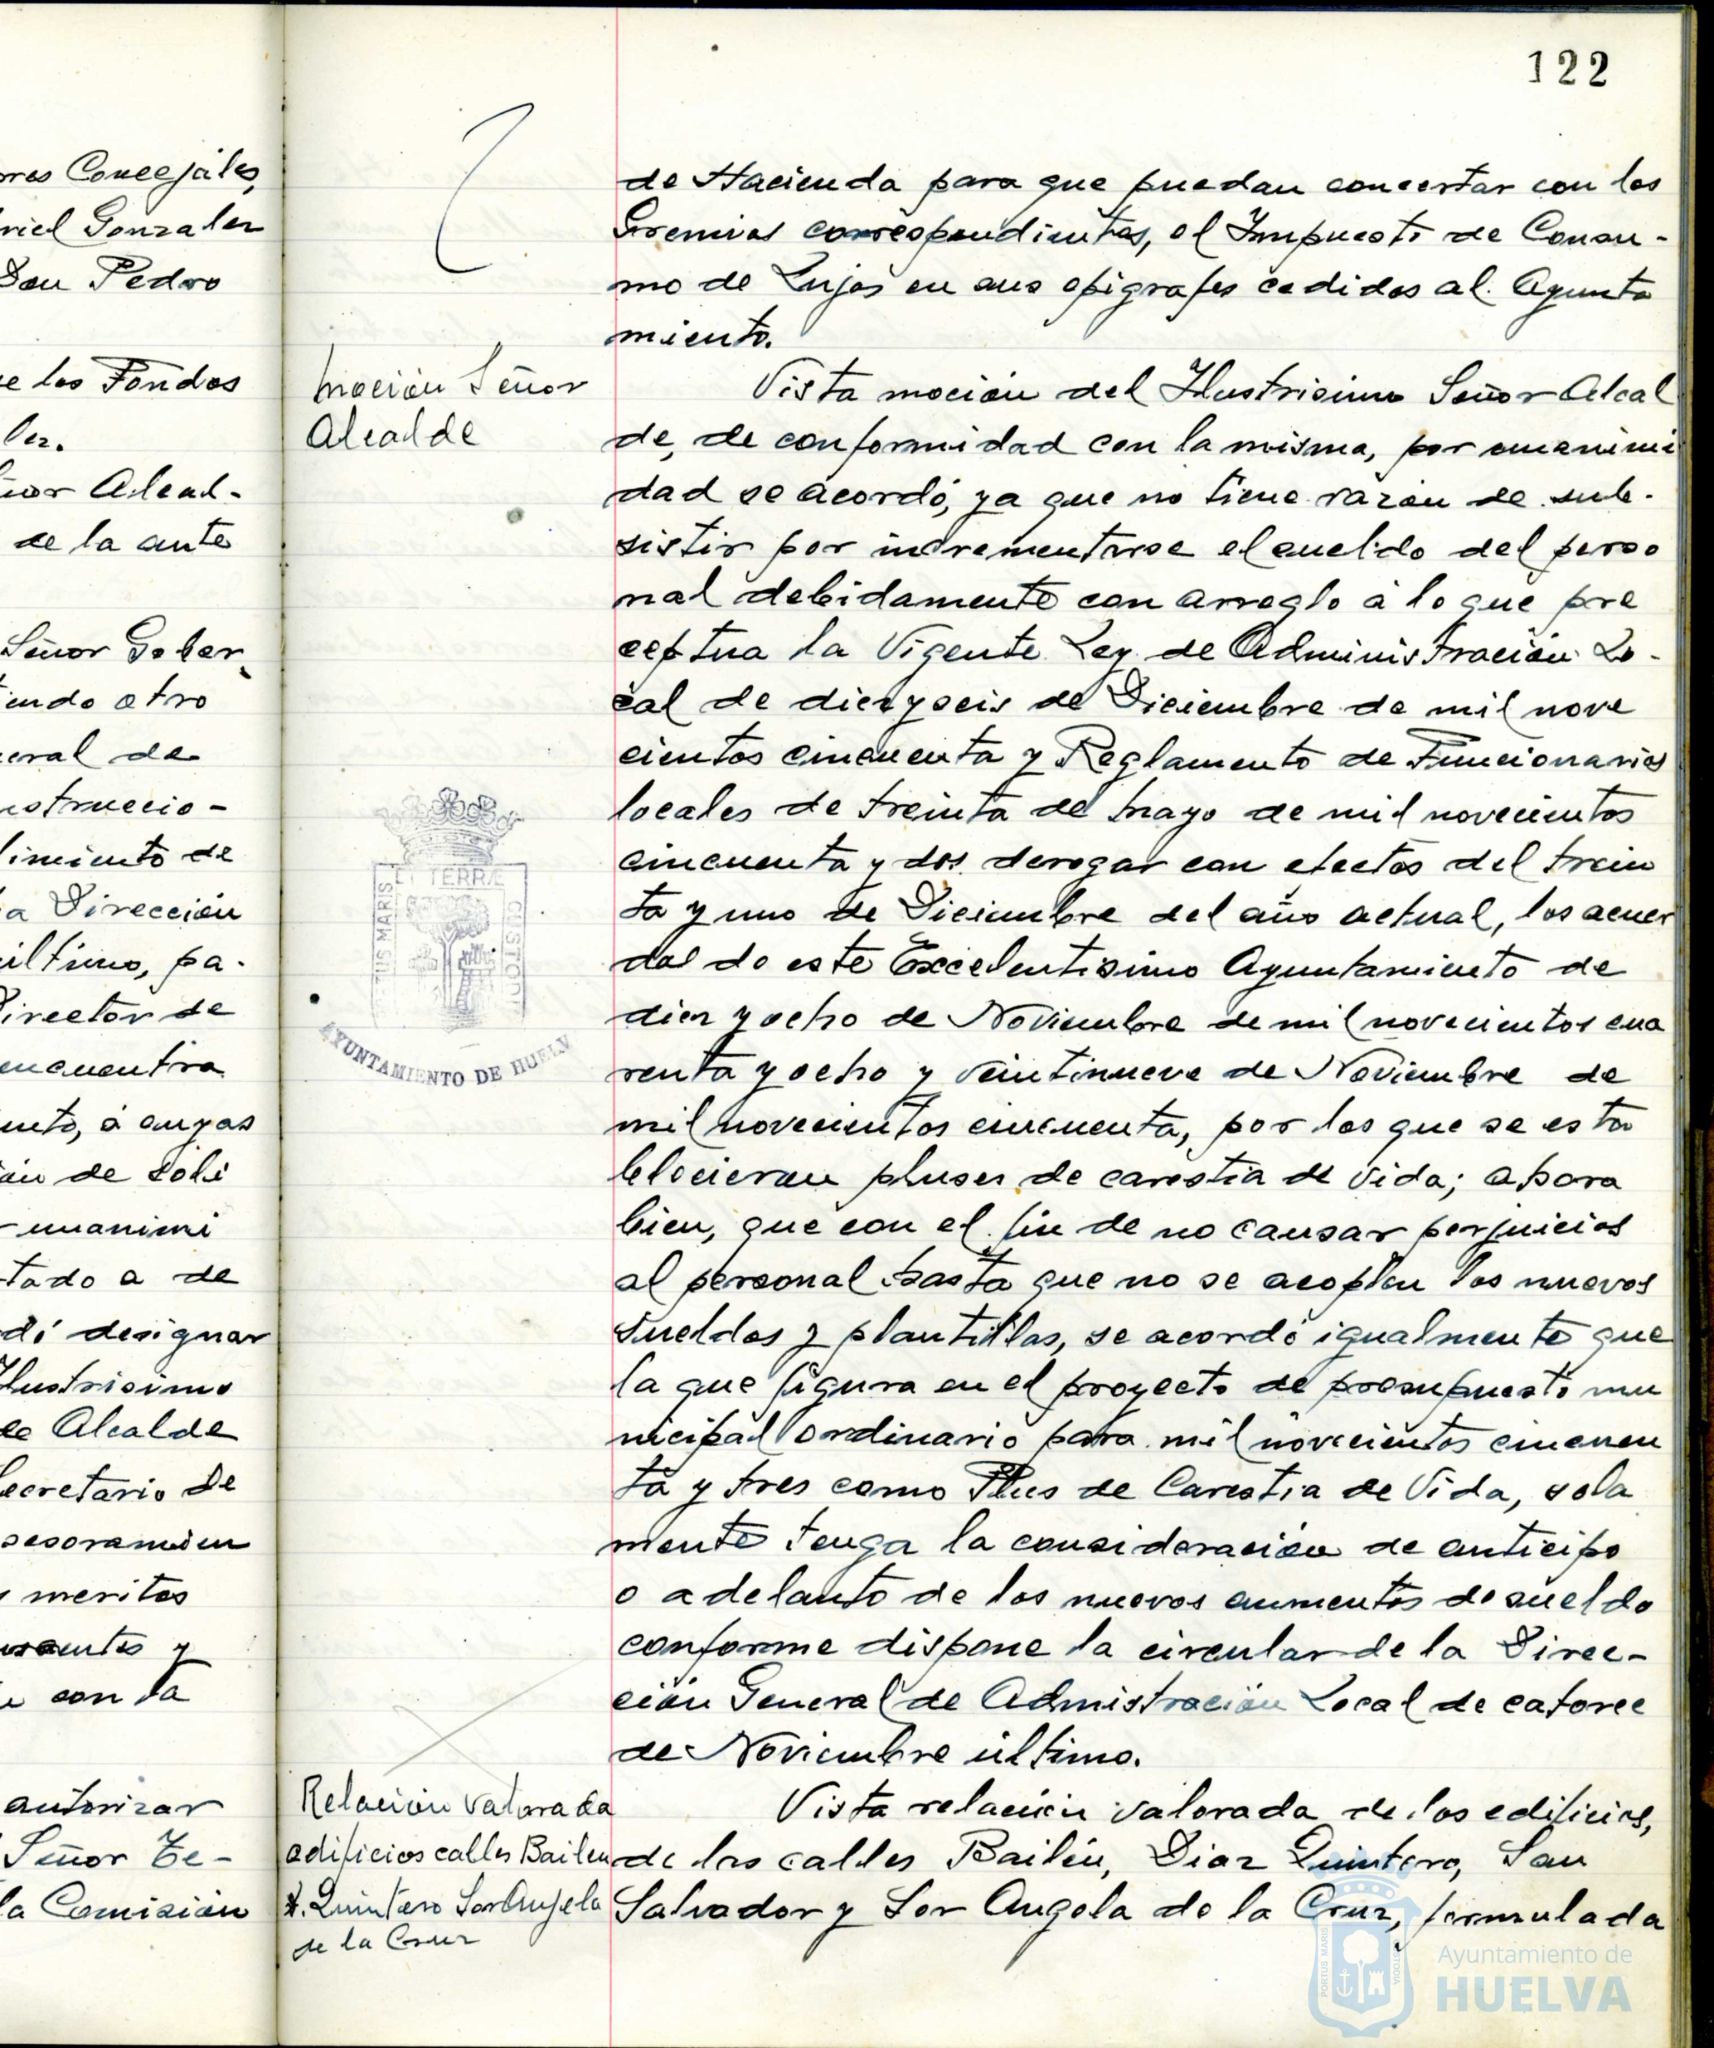 rres Concejales,
riel Gonzalez
Don Pedro
e los Fondos
lez.
ñor Alcal-
de la ante
Señor Gober
iendo otro
neral de
nstruccio-
limiento de
a Dirección
último, pa-
Director de
encuentra
ento, á cuyas
ón de soli
r unanimi
tado a de
dó designar
Ilustrisimo
de Alcalde
Secretario de
sesoramien
y meritos
y
con la
autorizar
Señor Te-
la Comisión
122
de Hacienda para que puedan concertar con los
Gremios correspondientes, el Impuesto de Consu-
mo de Lujos en sus epigrafes cedidos al Ayunta
miento.
Moción Señor
Alcalde
Vista moción del Ilustrisimo Señor Alcal
de, de conformidad con la misma, por unanimi
dad se acordó, ya que no tiene razón de sub-
sistir por incrementarse el sueldo del perso
nal debidamente con arreglo á lo que pre
ceptua la Vigente Ley de Administración Lo-
cal de diez y seis de Diciembre de mil nove
cientos cincuenta y Reglamento de Funcionarios
locales de treinta de Mayo de mil novecientos
cincuenta y dos derogar con efectos del trein
ta y uno de Diciembre del año actual, los acuer
dos de este Excelentisimo Ayuntamiento de
diez y ocho de Noviembre de mil novecientos cua
renta y ocho y veintinueve de Noviembre de
mil novecientos cincuenta, por los que se esta
blecieron pluses de carestia de vida; ahora
bien, que con el fin de no causar perjuicios
al personal hasta que no se acoplen los nuevos
sueldos y plantillas, se acordó igualmente que
la que figura en el proyecto de presupuesto mu
nicipal ordinario para mil novecientos cincuen
ta y tres como Plus de Carestia de Vida, sola
mente tenga la consideración de anticipo
o adelanto de los nuevos aumentos de sueldo
conforme dispone la circular de la Direc-
ción General de Admistración Local de catorce
de Noviembre último.
Relación valorada
edificios calles Bailen
Quintero Sor Angela
de la Cruz
Vista relación valorada de los edificios,
de las calles Bailén, Diaz Quintero, San
Salvador y Sor Angela de la Cruz, formulada
PORTUS MARIS
ET TERRÆ
CUSTODIA
AYUNTAMIENTO DE HUELV
PORTUS MARIS
CUSTODIA
Ayuntamiento de
HUELVA